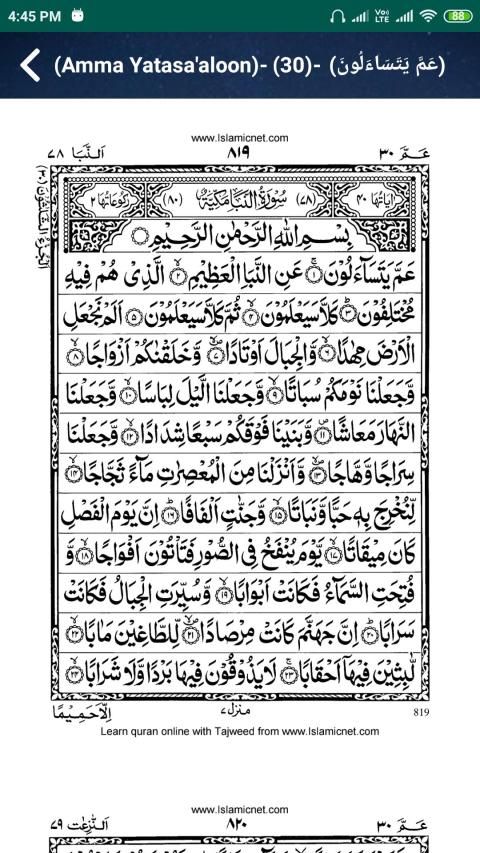 4:45 PM VoLTE 88
(Amma Yatasa'aloon)- (30)- (عَمَّ يَتَسَاءَلُونَ)
www.Islamicnet.com
عَـمَّ ٣٠ ٨١٩ اَلنَّبَا ٧٨
اٰيَاتُهَا ٤٠ (٧٨) سُوْرَةُ النَّبَاِ مَكِّيَّةٌ (٨٠) رُكُوْعَاتُهَا ٢
بِسْمِ اللّٰهِ الرَّحْمٰنِ الرَّحِيْمِ
عَمَّ يَتَسَآءَلُوْنَ ١ عَنِ النَّبَاِ الْعَظِيْمِ ٢ الَّذِىْ هُمْ فِيْهِ
مُخْتَلِفُوْنَ ٣ كَلَّا سَيَعْلَمُوْنَ ٤ ثُمَّ كَلَّا سَيَعْلَمُوْنَ ٥ اَلَمْ نَجْعَلِ
الْاَرْضَ مِهٰدًا ٦ وَّالْجِبَالَ اَوْتَادًا ٧ وَّخَلَقْنٰكُمْ اَزْوَاجًا ٨
وَّجَعَلْنَا نَوْمَكُمْ سُبَاتًا ٩ وَّجَعَلْنَا الَّيْلَ لِبَاسًا ١٠ وَّجَعَلْنَا
النَّهَارَ مَعَاشًا ١١ وَّبَنَيْنَا فَوْقَكُمْ سَبْعًا شِدَادًا ١٢ وَّجَعَلْنَا
سِرَاجًا وَّهَّاجًا ١٣ وَّاَنْزَلْنَا مِنَ الْمُعْصِرٰتِ مَآءً ثَجَّاجًا ١٤
لِّنُخْرِجَ بِهٖ حَبًّا وَّنَبَاتًا ١٥ وَّجَنّٰتٍ اَلْفَافًا ١٦ اِنَّ يَوْمَ الْفَصْلِ
كَانَ مِيْقَاتًا ١٧ يَّوْمَ يُنْفَخُ فِى الصُّوْرِ فَتَاْتُوْنَ اَفْوَاجًا ١٨ وَّ
فُتِحَتِ السَّمَآءُ فَكَانَتْ اَبْوَابًا ١٩ وَّسُيِّرَتِ الْجِبَالُ فَكَانَتْ
سَرَابًا ٢٠ اِنَّ جَهَنَّمَ كَانَتْ مِرْصَادًا ٢١ لِّلطَّاغِيْنَ مَاٰبًا ٢٢
لّٰبِثِيْنَ فِيْهَآ اَحْقَابًا ٢٣ لَا يَذُوْقُوْنَ فِيْهَا بَرْدًا وَّلَا شَرَابًا ٢٤
819 منزل ٧ اِلَّا حَمِيْمًا
Learn quran online with Tajweed from www.Islamicnet.com
www.Islamicnet.com
عَـمَّ ٣٠ ٨٢٠ اَلنّٰزِعٰت ٧٩